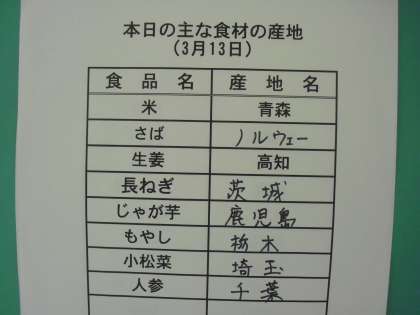 本日の主な食材の産地
（3月13日）
食品名 産地名
米 青森
さば ノルウェー
生姜 高知
長ねぎ 茨城
じゃが芋 鹿児島
もやし 栃木
小松菜 埼玉
人参 千葉